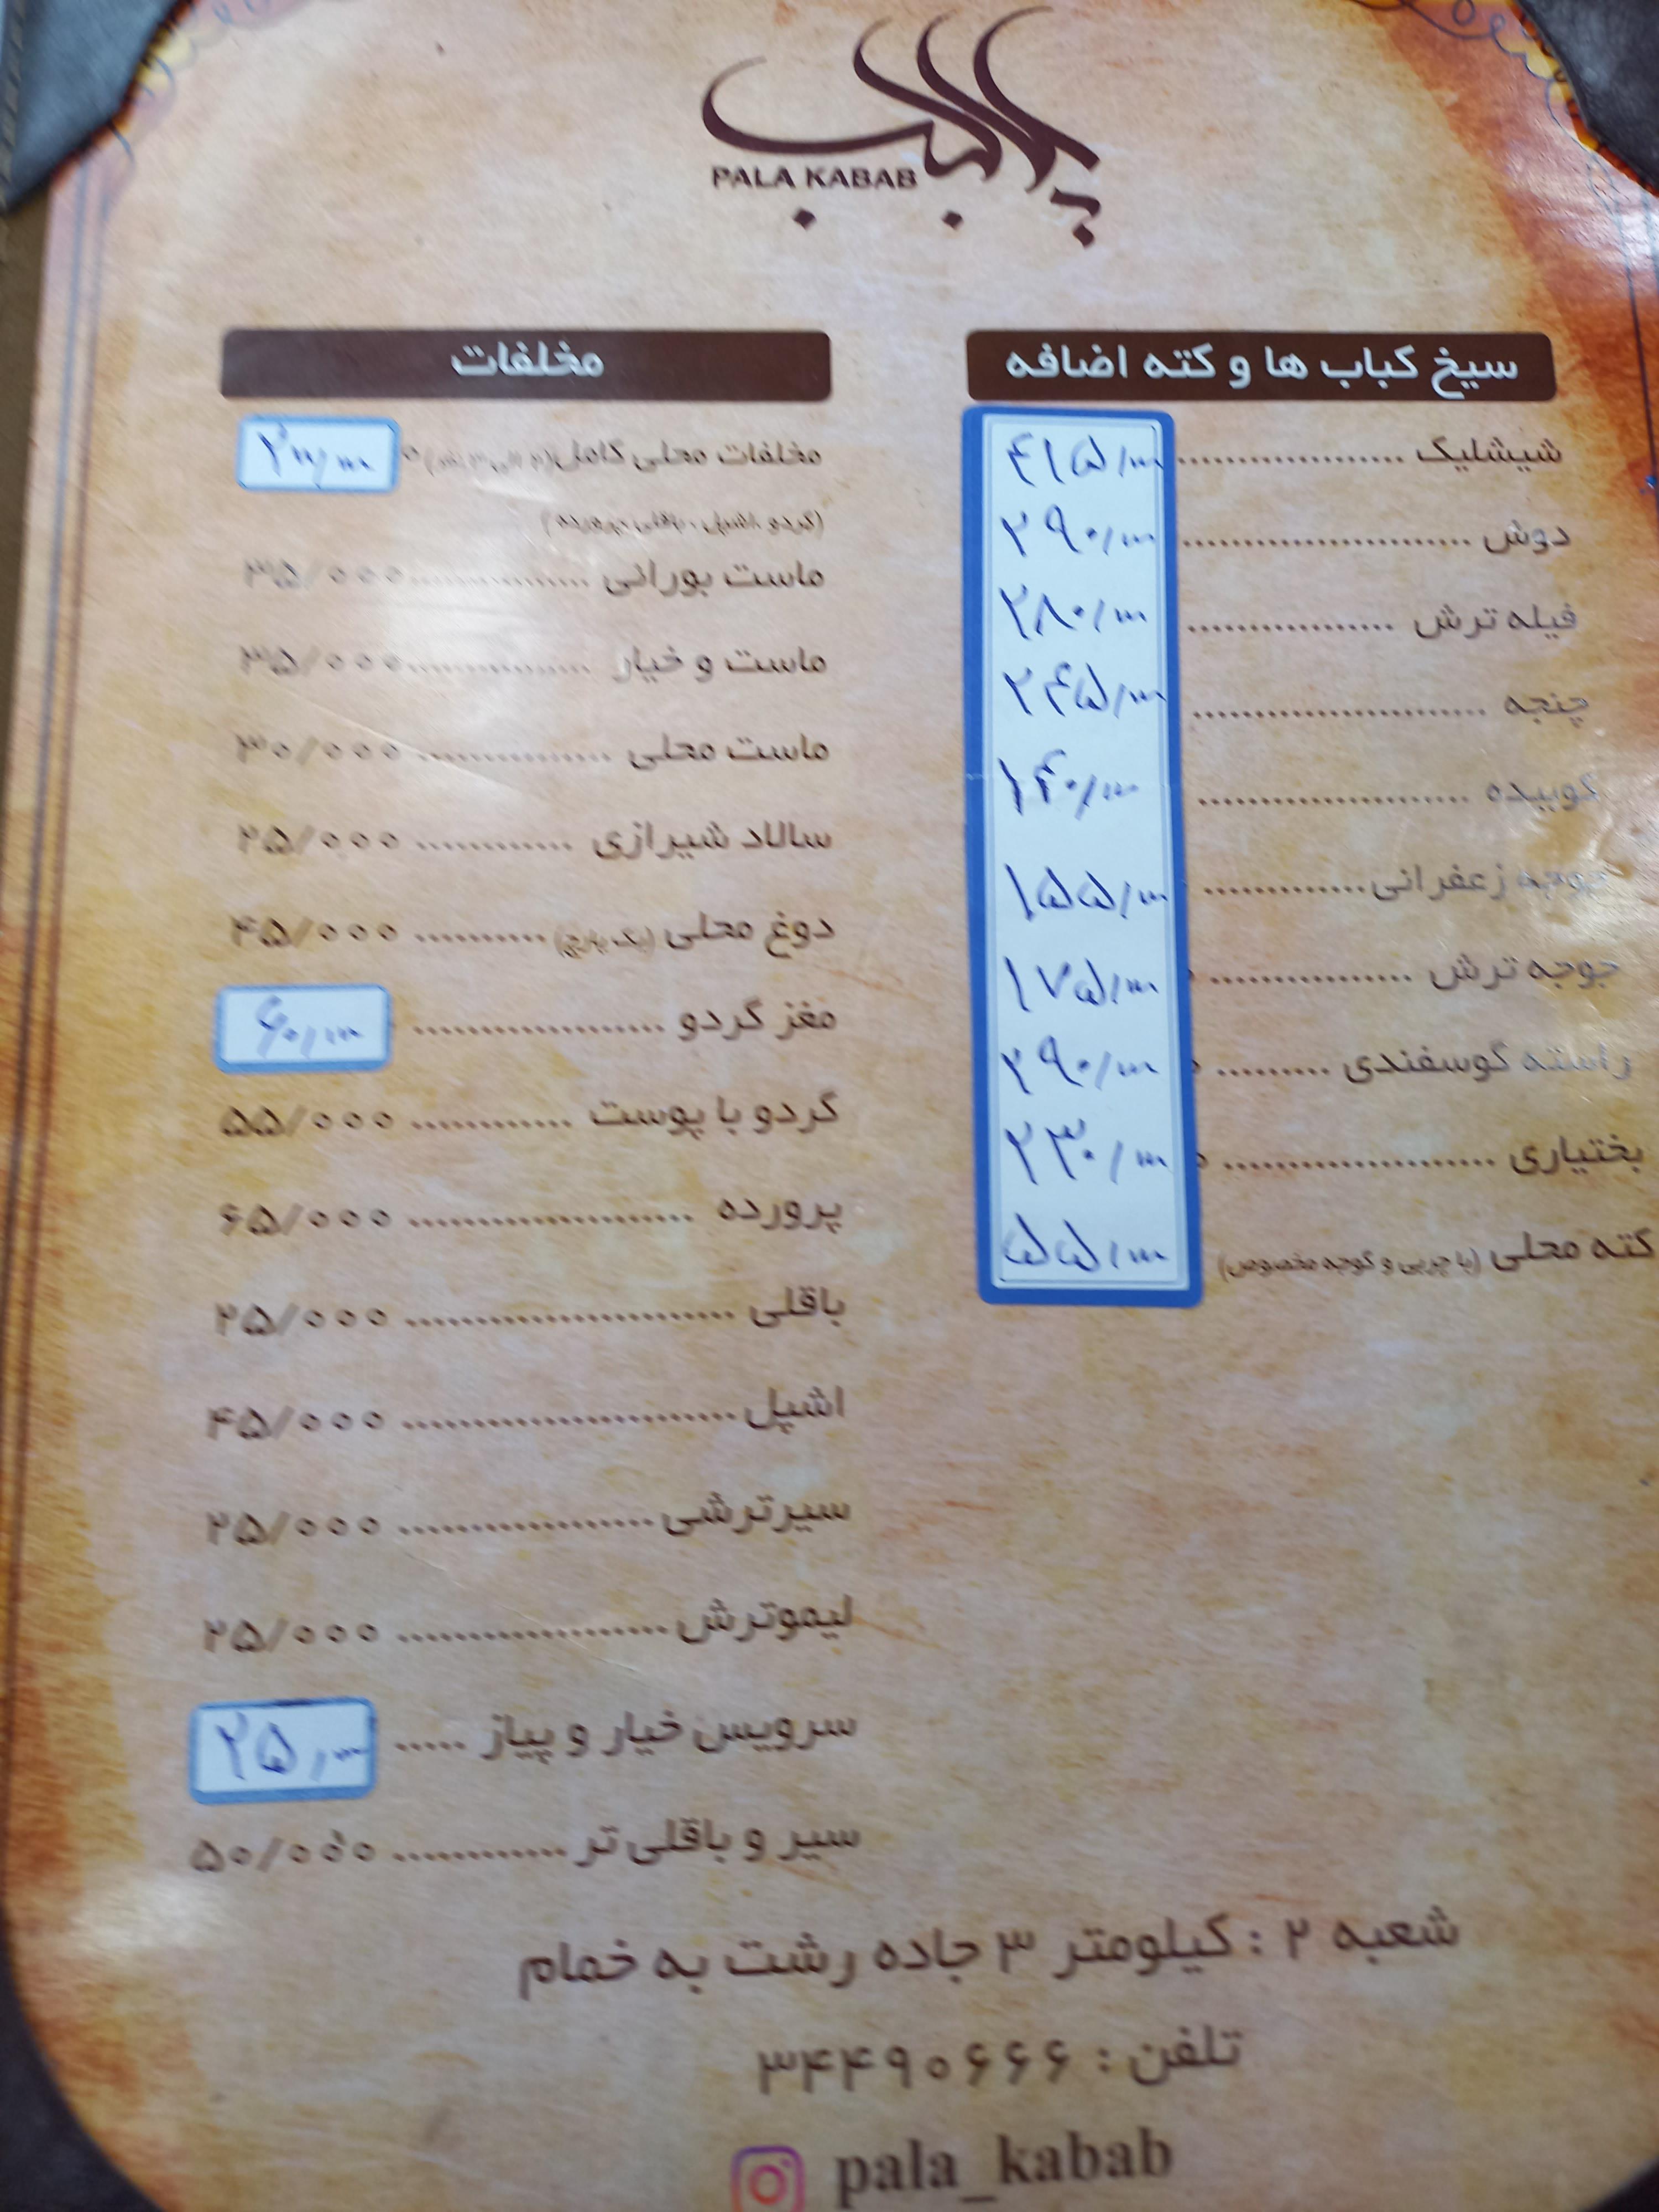 پلاکباب
PALA KABAB
سیخ کباب ها و کته اضافه
شیشلیک .................. ۴۱۵/۰۰۰
دوش ....................... ۲۹۰/۰۰۰
فیله ترش ................. ۲۸۰/۰۰۰
چنجه ....................... ۲۴۵/۰۰۰
کوبیده ...................... ۱۴۰/۰۰۰
جوجه زعفرانی ............. ۱۵۵/۰۰۰
جوجه ترش ................ ۱۷۵/۰۰۰
راسته گوسفندی ......... ۲۹۰/۰۰۰
بختیاری ...................... ۲۳۰/۰۰۰
کته محلی (با چربی و گوجه مخصوص) ۵۵/۰۰۰
مخلفات
مخلفات محلی کامل (۲ الی ۳ نفر)
(گردو، اشپل، باقلی، پرورده)
ماست بورانی ............... ۳۵/۰۰۰
ماست و خیار ............... ۳۵/۰۰۰
ماست محلی ................ ۳۰/۰۰۰
سالاد شیرازی ............. ۲۵/۰۰۰
دوغ محلی (یک پارچ) ........... ۴۵/۰۰۰
مغز گردو .................... ۶۰/۰۰۰
گردو با پوست ............. ۵۵/۰۰۰
پرورده ....................... ۶۵/۰۰۰
باقلی .......................... ۲۵/۰۰۰
اشپل .......................... ۴۵/۰۰۰
سیرترشی .................... ۲۵/۰۰۰
لیموترش ..................... ۲۵/۰۰۰
سرویس خیار و پیاز ..... ۲۵/۰۰۰
سیر و باقلی تر ............. ۵۰/۰۰۰
شعبه ۲ : کیلومتر ۳ جاده رشت به خمام
تلفن : ۳۴۴۹۰۶۶۶
pala_kabab